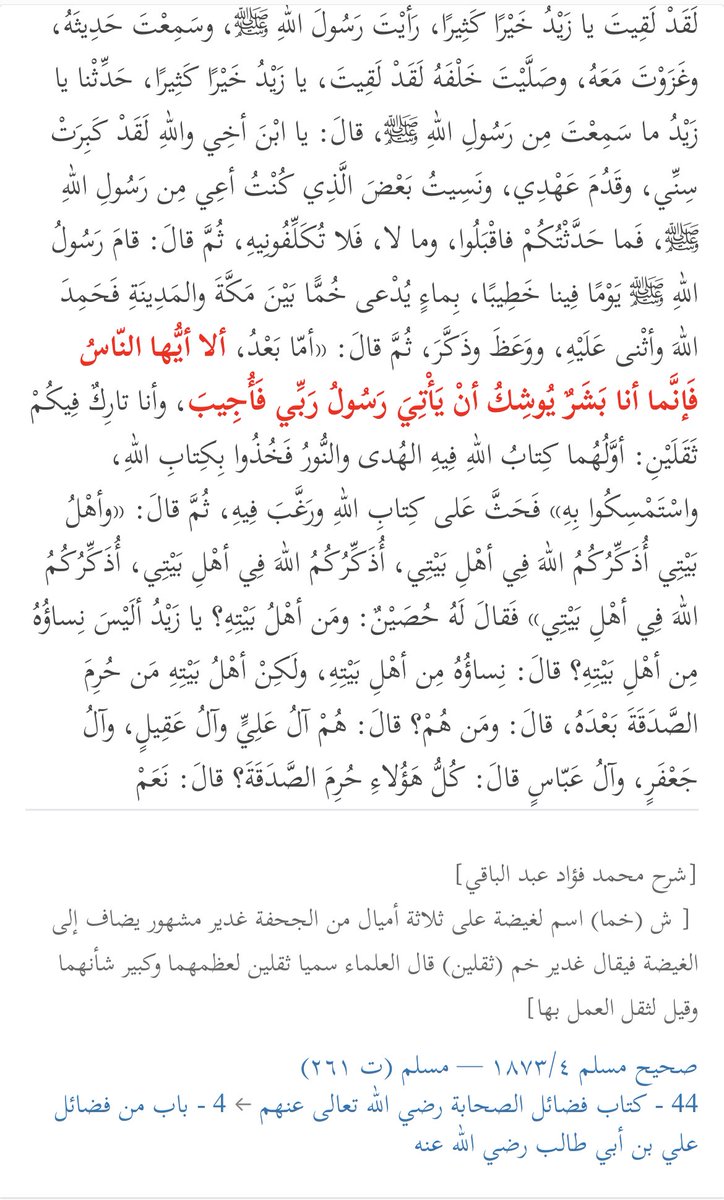 لَقَدْ لَقِيتَ يا زَيْدُ خَيْرًا كَثِيرًا، رَأَيْتَ رَسُولَ اللهِ ﷺ، وسَمِعْتَ حَدِيثَهُ،
وغَزَوْتَ مَعَهُ، وصَلَّيْتَ خَلْفَهُ لَقَدْ لَقِيتَ، يا زَيْدُ خَيْرًا كَثِيرًا، حَدِّثْنا يا
زَيْدُ ما سَمِعْتَ مِن رَسُولِ اللهِ ﷺ، قالَ: يا ابْنَ أخِي واللهِ لَقَدْ كَبِرَتْ
سِنِّي، وقَدُمَ عَهْدِي، ونَسِيتُ بَعْضَ الَّذِي كُنْتُ أعِي مِن رَسُولِ اللهِ
ﷺ، فَما حَدَّثْتُكُمْ فاقْبَلُوا، وما لا، فَلا تُكَلِّفُونِيهِ، ثُمَّ قالَ: قامَ رَسُولُ
اللهِ ﷺ يَوْمًا فِينا خَطِيبًا، بِماءٍ يُدْعى خُمًّا بَيْنَ مَكَّةَ والمَدِينَةِ فَحَمِدَ
اللهَ وأثْنى عَلَيْهِ، ووَعَظَ وذَكَّرَ، ثُمَّ قالَ: «أمّا بَعْدُ، ألا أيُّها النّاسُ
فَإنَّما أنا بَشَرٌ يُوشِكُ أنْ يَأْتِيَ رَسُولُ رَبِّي فَأُجِيبَ، وأنا تارِكٌ فِيكُمْ
ثَقَلَيْنِ: أوَّلُهُما كِتابُ اللهِ فِيهِ الهُدى والنُّورُ فَخُذُوا بِكِتابِ اللهِ،
واسْتَمْسِكُوا بِهِ» فَحَثَّ عَلى كِتابِ اللهِ ورَغَّبَ فِيهِ، ثُمَّ قالَ: «وأهْلُ
بَيْتِي أُذَكِّرُكُمُ اللهَ فِي أهْلِ بَيْتِي، أُذَكِّرُكُمُ اللهَ فِي أهْلِ بَيْتِي، أُذَكِّرُكُمُ
اللهَ فِي أهْلِ بَيْتِي» فَقالَ لَهُ حُصَيْنٌ: ومَن أهْلُ بَيْتِهِ؟ يا زَيْدُ ألَيْسَ نِساؤُهُ
مِن أهْلِ بَيْتِهِ؟ قالَ: نِساؤُهُ مِن أهْلِ بَيْتِهِ، ولَكِنْ أهْلُ بَيْتِهِ مَن حُرِمَ
الصَّدَقَةَ بَعْدَهُ، قالَ: ومَن هُمْ؟ قالَ: هُمْ آلُ عَلِيٍّ وآلُ عَقِيلٍ، وآلُ
جَعْفَرٍ، وآلُ عَبّاسٍ قالَ: كُلُّ هَؤُلاءِ حُرِمَ الصَّدَقَةَ؟ قالَ: نَعَمْ
[شرح محمد فؤاد عبد الباقي]
[ ش (خما) اسم لغيضة على ثلاثة أميال من الجحفة غدير مشهور يضاف إلى
الغيضة فيقال غدير خم (ثقلين) قال العلماء سميا ثقلين لعظمهما وكبير شأنهما
وقيل لثقل العمل بها]
صحيح مسلم ٤/١٨٧٣ — مسلم (ت ٢٦١)
44 - كتاب فضائل الصحابة رضي الله تعالى عنهم ← 4 - باب من فضائل
علي بن أبي طالب رضي الله عنه